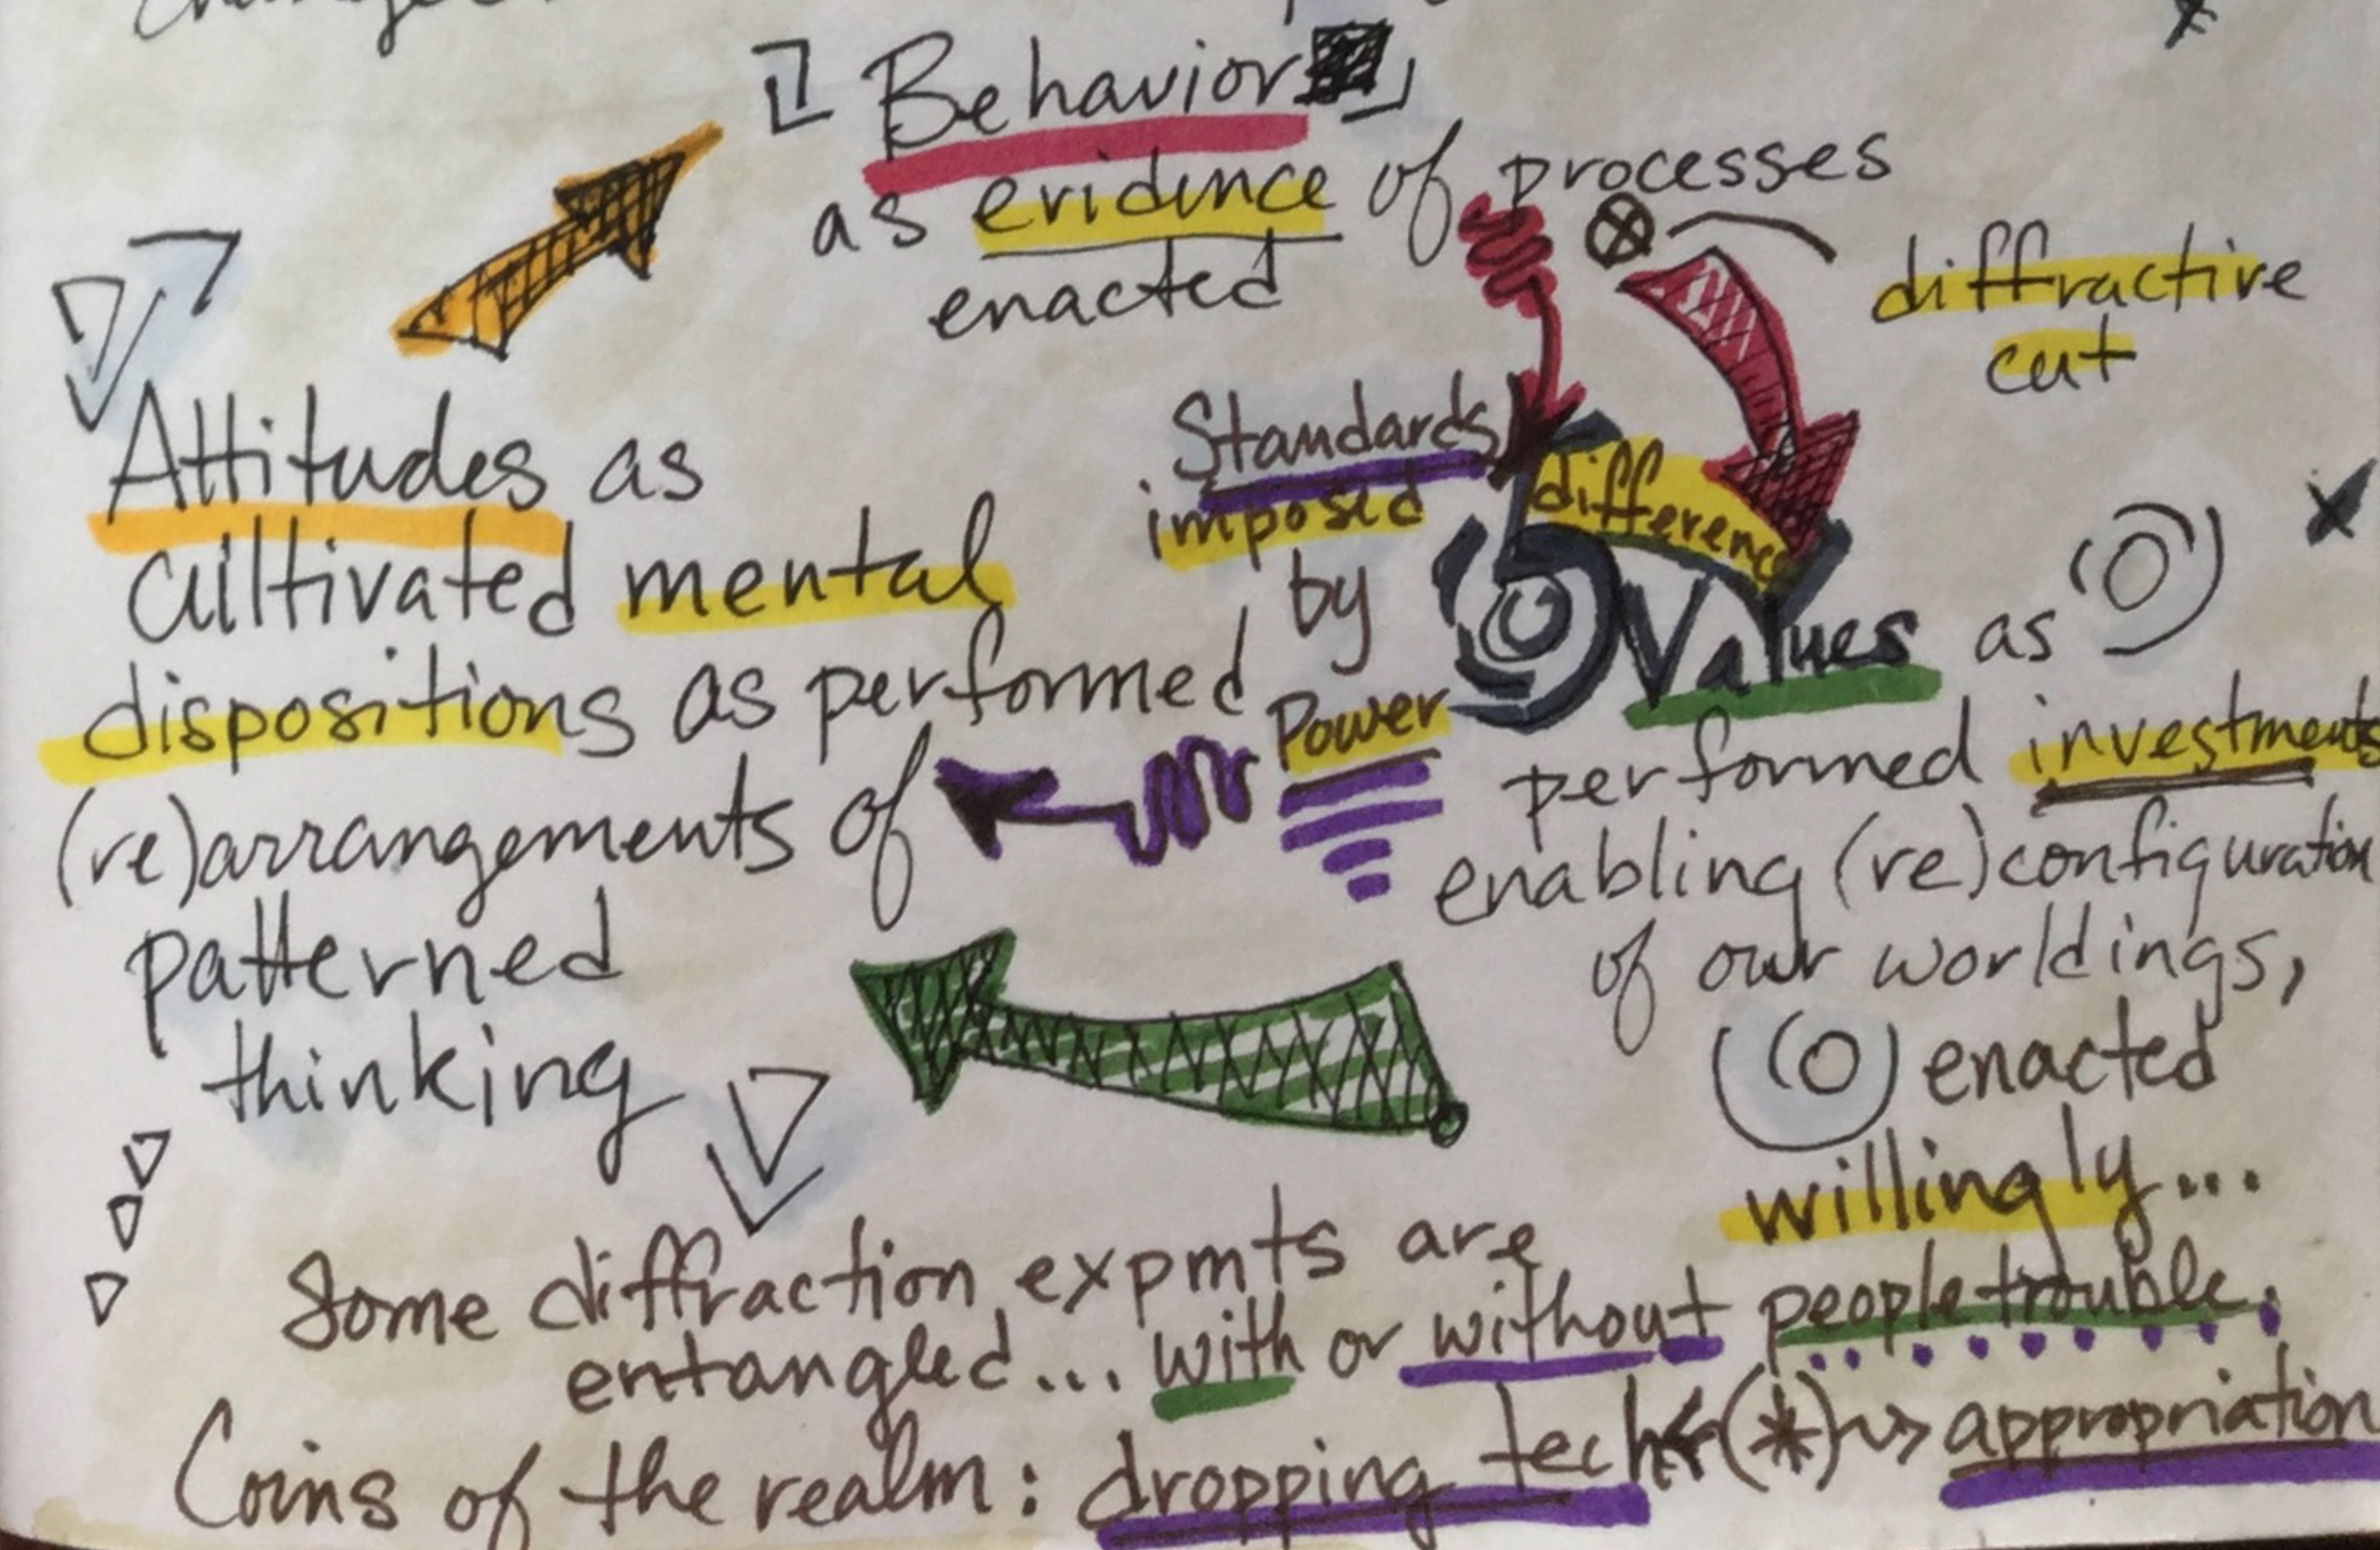 Behavior
as evidence of processes
enacted
diffractive
cut
Attitudes as
cultivated mental
dispositions as performed
(re)arrangements of
patterned
thinking
Standards
imposed
by
Power
difference
Values as
performed investments
enabling (re)configuration
of our worldings,
enacted
willingly...
Some diffraction expmts are
entangled... with or without people trouble.
Coins of the realm: dropping tech (*) appropriation